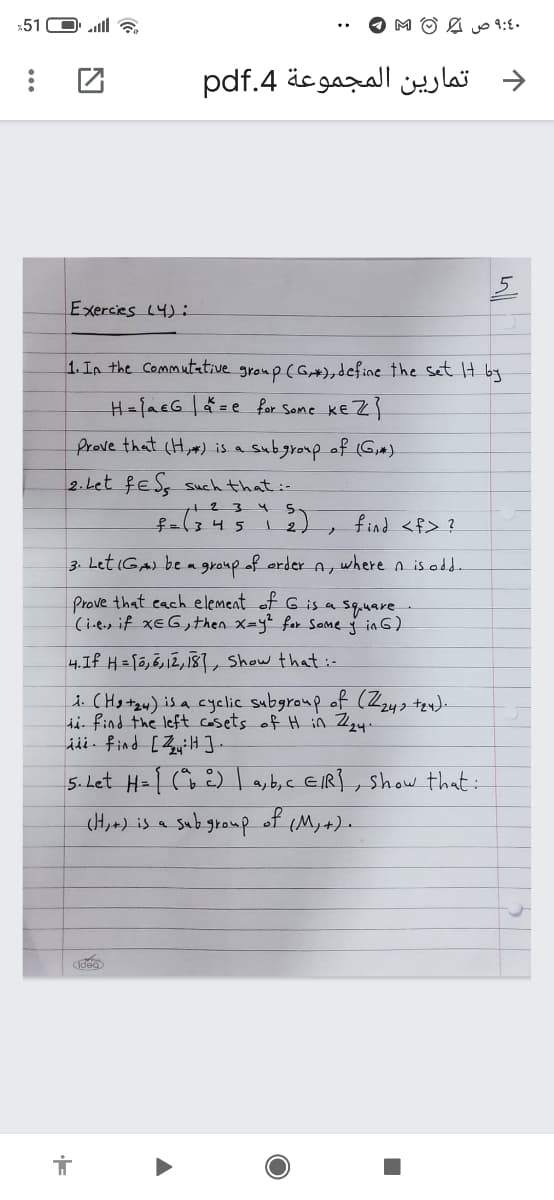 ٪51 ٩:٤٠ ص
تمارين المجموعة 4.pdf
5
Exercies (4):
1. In the Commutative group (G,*), define the set H by
H = {a∈G | aᵏ = e for some k∈Z}
Prove that (H,*) is a subgroup of (G,*)
2. Let f∈S₅ such that :-
f = (1 2 3 4 5
3 4 5 1 2) , find <f> ?
3. Let (G,*) be a group of order n, where n is odd.
Prove that each element of G is a square.
(i.e., if x∈G, then x=y² for some y in G)
4. If H = {0̄, 6̄, 1̄2̄, 1̄8̄}, show that :-
i. (H,+₂₄) is a cyclic subgroup of (Z₂₄, +₂₄).
ii. find the left cosets of H in Z₂₄.
iii. find [Z₂₄:H].
5. Let H = { (a 0
b c) | a,b,c ∈ IR}, show that:
(H,+) is a subgroup of (M,+).
idea